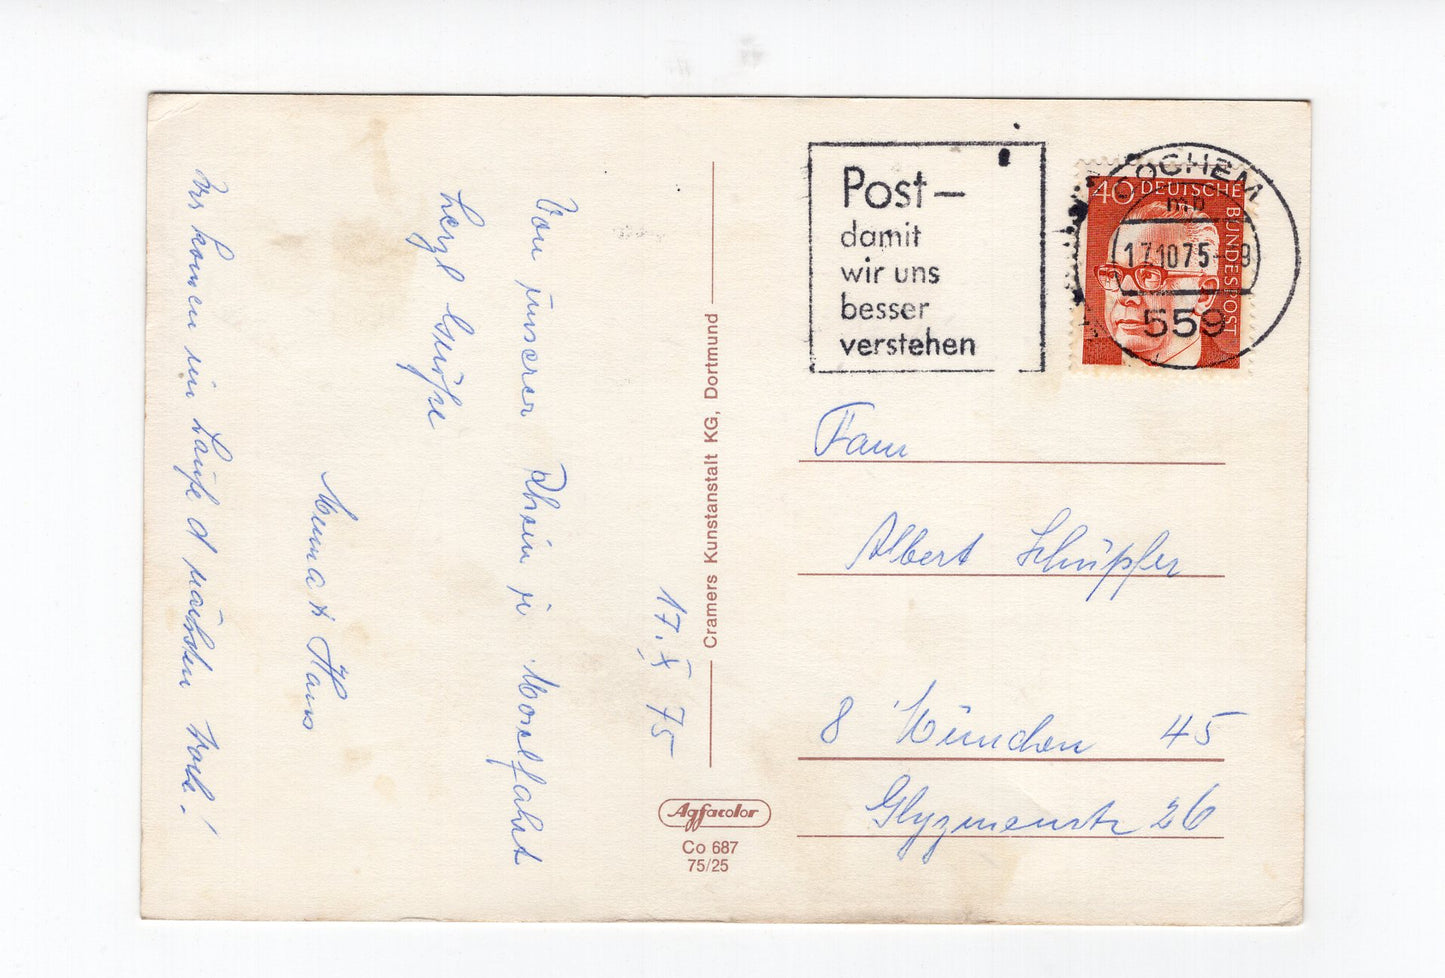 17. X 75
Von unserer Rhein u Moselfahrt
herzl Grüße
Hans
Wir kommen im Laufe d nächsten Woche!
Cramers Kunstanstalt KG, Dortmund
Agfacolor
Co 687
75/25
Post –
damit
wir uns
besser
verstehen
COCHEM
mb
17.10.75-9
559
40 DEUTSCHE
BUNDESPOST
Fam
Albert Schüpfer
8 München 45
Glyzinenstr 26